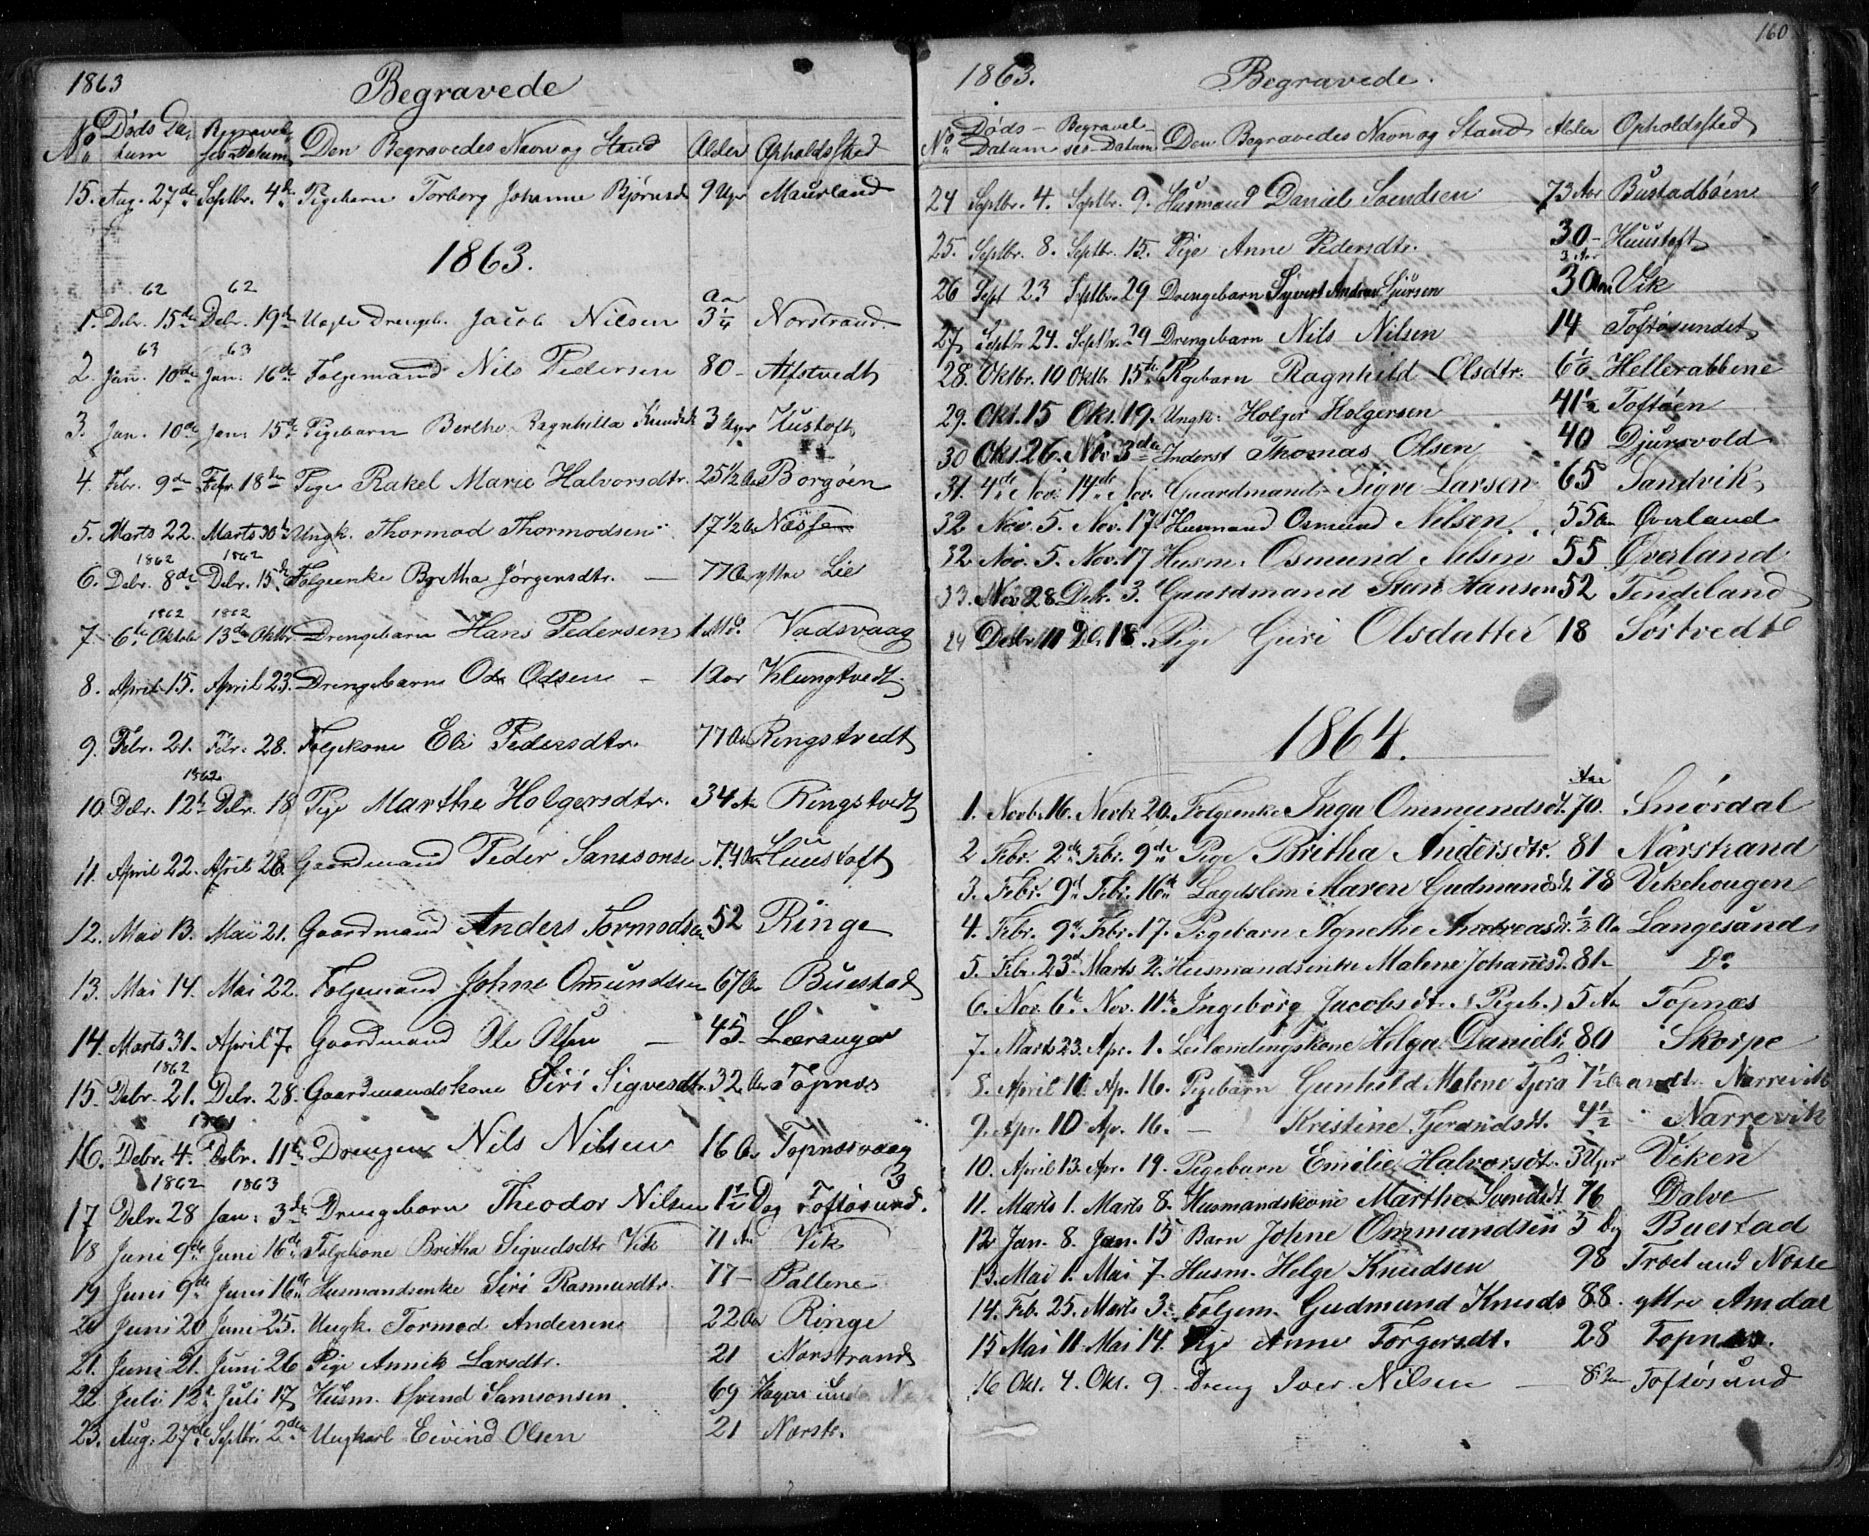 1863
Begravede
No. Døds Datum Begravelsesdatum Den Begravedes Navn og Stand Alder Opholdssted
15. Aug. 27de Septbr. 4de Pigebarn Torborg Johanne Bjørnsd 9 Uger Maurland
1863.
62 62 Aar
1. Debr. 15de Debr. 19de Uægte Drengeb. Jacob Nilsen 3 1/4 Norstrand
63 63
2. Jan. 10de Jan. 16de Folgemand Nils Pedersen 80 - Alfstvedt
3. Jan. 10de Jan. 15de Pigebarn Berthe Ragnhilla Knudsdt 3 Uger Hustoft
4. Febr. 9de Febr. 18de Pige Rakel Marie Halvorsdtr. 25 1/2 Aar Borgøen
5. Marts 22. Marts 30te Ungk. Thormod Thormodsen 17 1/2 Aar Næsse
1862 1862
6. Debr. 8de Debr. 15de Folgeenke Byrtha Jørgensdtr. — 77 Aar yttre Lie
1862 1862
7. 6te Oktobr 13de Oktbr Drengebarn Hans Pedersen 1 Md. Vadsvaag
8. April 15. April 23. Drengebarn Ode Odsen - 1 Aar Klungtvedt
9. Febr. 21. Febr. 28. Folgekone Eli Pedersdtr. 77 Aar Ringstvedt
1862
10. Debr. 12te Debr. 18 Pige Marthe Holgersdtr. 34 Aar Ringstvedt
11. April 22. April 28. Gaardmand Peder Samsonsen 74 Aar Huustoft
12. Mai 13. Mai 21. Gaardmand Anders Tormodsen 52 Ringe
13. Mai 14. Mai 22. Folgemand Johne Omundsen 67 Aar Buestad
14. Marts 31. April 7. Gaardmand Ole Olsen — 45. Leeranger
1862
15. Debr. 21. Debr. 28. Gaardmandskone Siri Sigvesdtr. 32 Aar Topnæs
1861
16. Debr. 4. Debr. 11te Drengen Nils Nilsen 16 Aar Topnæsvaag
1862 1863
17 Debr. 28 Jan. 3de Drengebarn Theodor Nilsen 1 1/2 Dag Toftøsund.
18 Juni 9de Juni 16de Folgekone Britha Sigvedsdtr Vik 71 Aar Vik
19 Juni 9de Juni 16de Husmandsenke Siri Rasmusdtr. 77 - Fallene
20 Juni 20 Juni 25. Ungk. Tormod Andersen 22 Aar Ringe
21. Juni 21. Juni 26 Pige Annik Larsdtr. 21 Norstrand
22. Juli 12te Juli 17 Husm. Svend Samsonsen. 69 Hagen under
23. Aug. 27de Septbr. 2den Ungkarl Eivind Olsen 21 Norstr.
160
1863. Begravede.
No. Døds-Datum Begravelses-Datum Den Begravedes Navn og Stand Alder Opholdssted
24 Septbr. 4. Septbr. 9. Husmand Daniel Svendsen 73 Aar Bustadbøen
25. Septbr. 8. Septbr. 15. Pige Anne Pedersdtr. 30 - Huustoft
3 Aar
26 Sept 23 Septbr. 29 Drengebarn Syvert Andreas Sjursen 3 Aar Vik
27 Septbr 24. Septbr. 29 Drengebarn Nils Nilsen 14 Toftøsundet
28. Oktbr. 10 Oktbr 15de Pigebarn Ragnhild Olsdtr. 6 1/2 Hellerabbene
29. Okt. 15 Okt. 19. Ungk. Holger Holgersen 41 1/2 Toftøen
30 Okt. 26. Nov. 3de Inderst Thomas Olsen 40 Djursvold
31. 4de Nov. 14de Nov. Gaardmand Sigve Larsen 65 Sandvik
32 Nov. 5. Nov. 17 Husmand Osmund Nilsen 55 Aar Øverland
32 Nov. 5. Nov. 17 Husm. Osmund Nilsen 55 Øverland
33. Nov 28. Debr. 3. Gaardmand Hansen 52 Tendeland
24 Debr 11 Do. 18. Pige Guri Olsdatter 18 Sostvedt
1864.
Aar
1. Novb. 16. Novbr 20. Folgeenke Inga Ommundsdt. 70. Smørdal
2 Febr. 2de Febr. 9de Pige Britha Andersdtr. 81 Narstrand
3. Febr. 9de Febr. 16de Lægdslem Maren Gudmundsdt. 78 Vikehougen
4. Febr. 9de Febr. 17. Pigebarn Agnethe Andreasdt. 1/2 Aar Langesund
5. Febr. 23de Marts 2. Husmandsenke Malene Johannesd. 81 - Do
6. Nov. 6te Nov. 11te Ingeborg Jacobsdtr. (Pigeb.) 5 Aar Topnæs
7. Marts 23. Apr. 1. Leilændingskone Helga Danielsd. 80 Skorpe
8. April 10 Ap. 16. Pigebarn Gunhild Malene Tjerandsdtr. 7 1/2 Aar Narrevik
9. Apr. 10 Ap. 16. — Kristine Tjerandsdt. 4 1/2 Narrevik
10. April 13. Apr. 19. Pigebarn Emilie Halvorsdt. 3 Uger Viken
11. Marts 1. Marts 8. Husmandskone Marthe Svendsdt. 76 Dalve
12 Jan. 8. Jan. 15 Barn Johne Ommundsen 5 Dg Buestad
13. Mai 1. Mai 7. Husm. Helge Knudsen 98 Træet und Næsse
14. Feb. 25. Marts 3. Folgem. Gudmund Knuds 88. yttre Amdal
15 Mai 11 Mai 14. Pige Anne Torgersdt. 28 Topnæs.
16 Okt. 4. Okt. 9. Dreng Iver Nilsen — 8 Aar Toftøsund